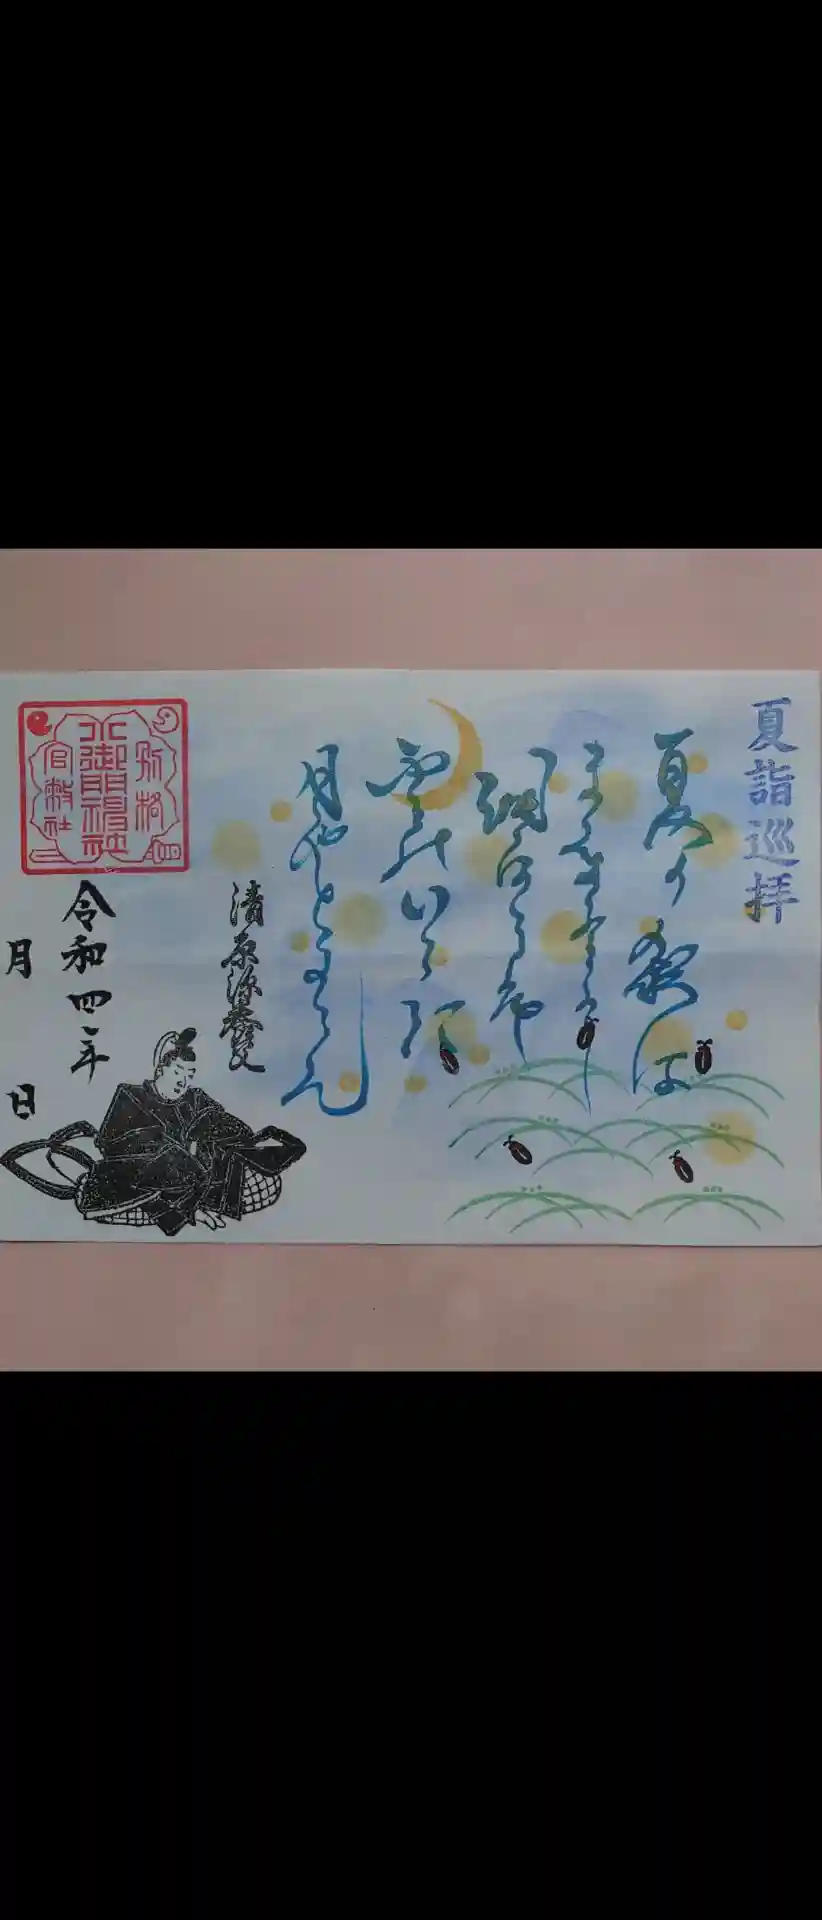 夏詣巡拝
夏の夜は
まだよひながら
明けぬるを
雲のいつこに
月やとるらん
清原深養父
別格
小御門神社
官幣社
令和四年
月　日